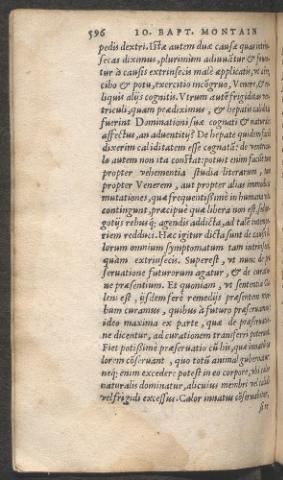 596 IO. BAPT. MONTAIN
pedis dextri. Istæ autem duæ causæ quas intrin-
secas diximus, plurimùm adiuuãtur & fiunt
tur à causis extrinsecis malè applicatis, vt
cibo & potu, exercitio incõgruo, Venere, & re-
liquis alijs cognitis. Vtrum autẽ frigiditas ven-
triculi, quam prædiximus, & hepatis calidi
fuerint Dominationi suæ cognati & naturales
affectus, an aduentitij? De hepate quidem facilè
dixerim caliditatem esse cognatã: de ventricu-
lo autem non ita constat: potuit enim facile
propter vehementia studia literarum, tum
propter Venerem, aut propter alias immodicas
mutationes, quæ frequentissimè in humana vita
contingunt, præcipuè quæ libera non est, sed ne-
gotijs rebusq; agendis addicta, ad talẽ intempe-
riem reduci. Hæc igitur dicta sunt de causis il-
lorum omnium symptomatum tam intrinsecis,
quàm extrinsecis. Superest, vt nunc de præ
seruatione futurorum agatur, & de curatio-
ne præsentium. Et quoniam, vt sententia Ga-
leni est, ijsdem ferè remedijs præsentem mor-
bum curamus, quibus à futuro præseruamus:
ideo maxima ex parte, quæ de præseruatio-
ne dicentur, ad curationem transferri poterunt.
Fiet potissimè præseruatio cũ his, quæ innatũ ca-
lorem cõseruant, quo totũ animal gubernatur:
neq; enim excedere potest in eo corpore, vbi calor
naturalis dominatur, alicuius membri vel calidi
vel frigidi excessus. Calor innatus cõseruabitur,